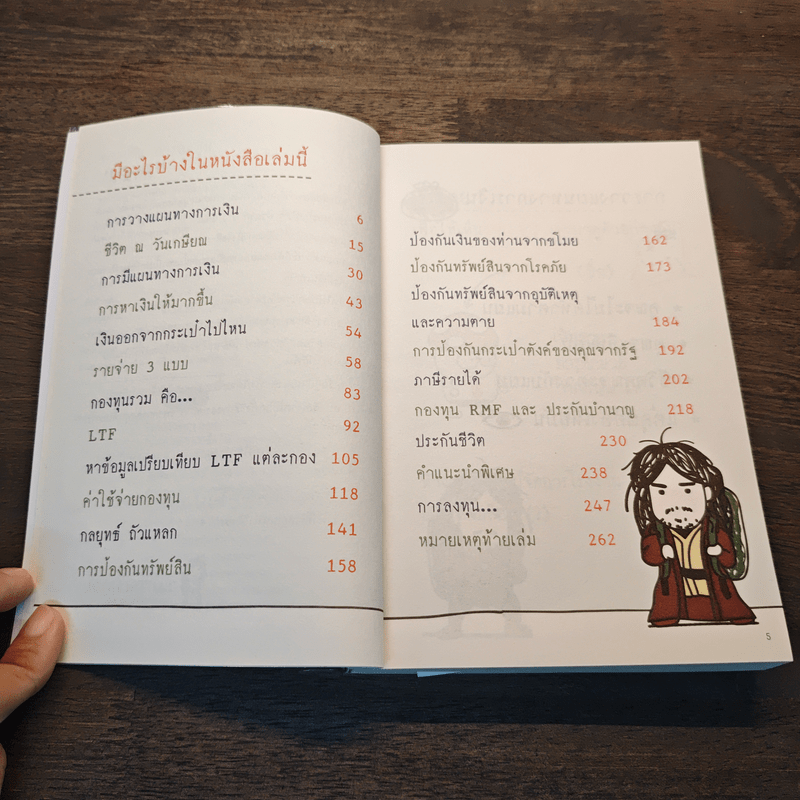 มีอะไรบ้างในหนังสือเล่มนี้
การวางแผนทางการเงิน 6
ชีวิต ณ วันเกษียณ 15
การมีแผนทางการเงิน 30
การหาเงินให้มากขึ้น 43
เงินออกจากกระเป๋าไปไหน 54
รายจ่าย 3 แบบ 58
กองทุนรวม คือ... 83
LTF 92
หาข้อมูลเปรียบเทียบ LTF แต่ละกอง 105
ค่าใช้จ่ายกองทุน 118
กลยุทธ์ ถัวแหลก 141
การป้องกันทรัพย์สิน 158
ป้องกันเงินของท่านจากขโมย 162
ป้องกันทรัพย์สินจากโรคภัย 173
ป้องกันทรัพย์สินจากอุบัติเหตุ
และความตาย 184
การป้องกันกระเป๋าตังค์ของคุณจากรัฐ 192
ภาษีรายได้ 202
กองทุน RMF และ ประกันบำนาญ 218
ประกันชีวิต 230
คำแนะนำพิเศษ 238
การลงทุน... 247
หมายเหตุท้ายเล่ม 262
5